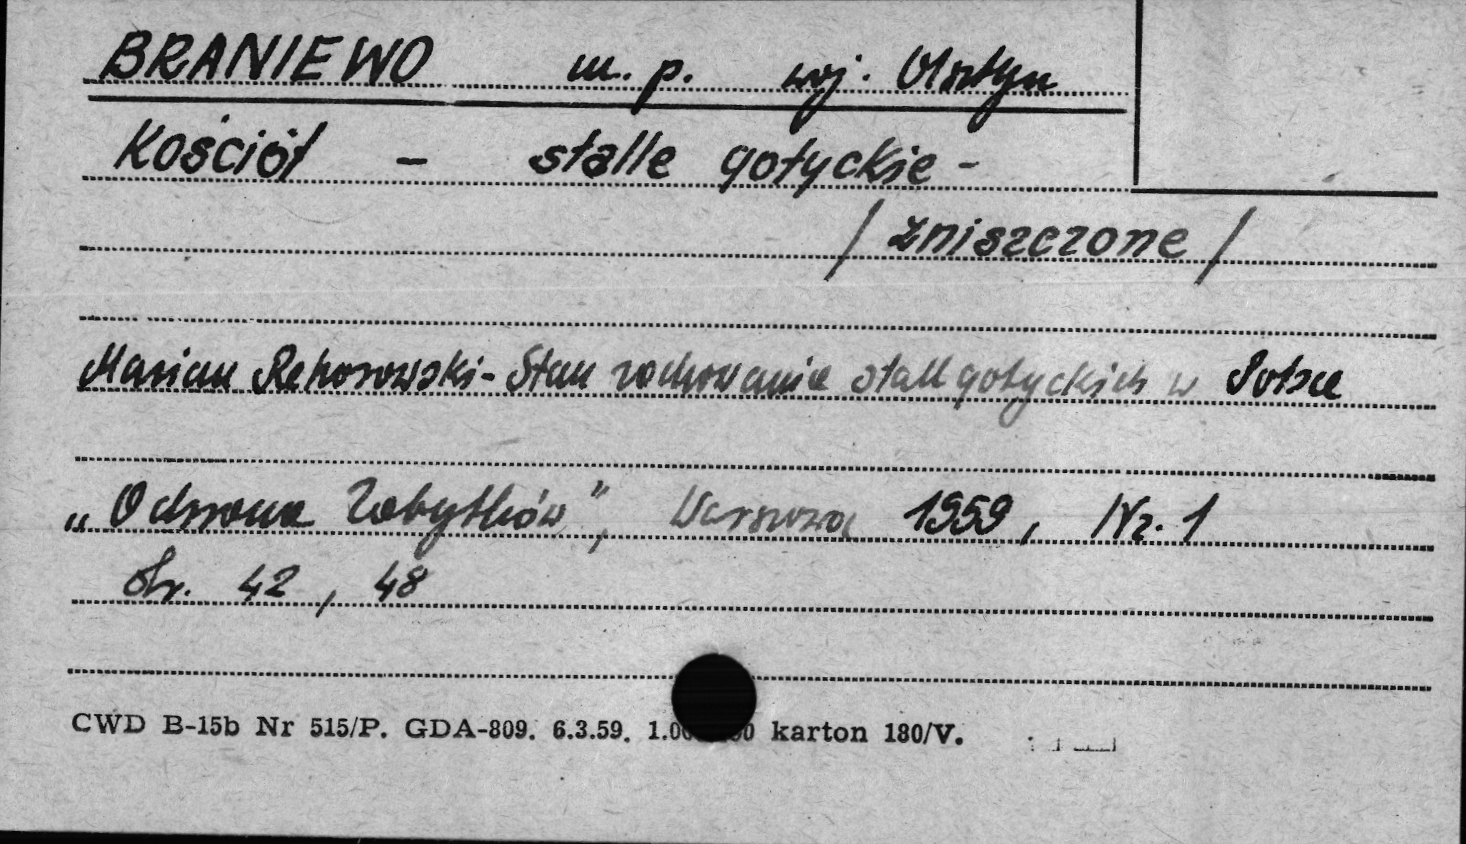 BRANIEWO m. p. woj. Olsztyn
Kościół - stalle gotyckie -
/ zniszczone /
Marian Rehorowski - Stan zachowania stall gotyckich w Polsce
„Ochrona Zabytków”, Warszawa 1959, Nr. 1
str. 42, 48
CWD B-15b Nr 515/P. GDA-809. 6.3.59. karton 180/V.